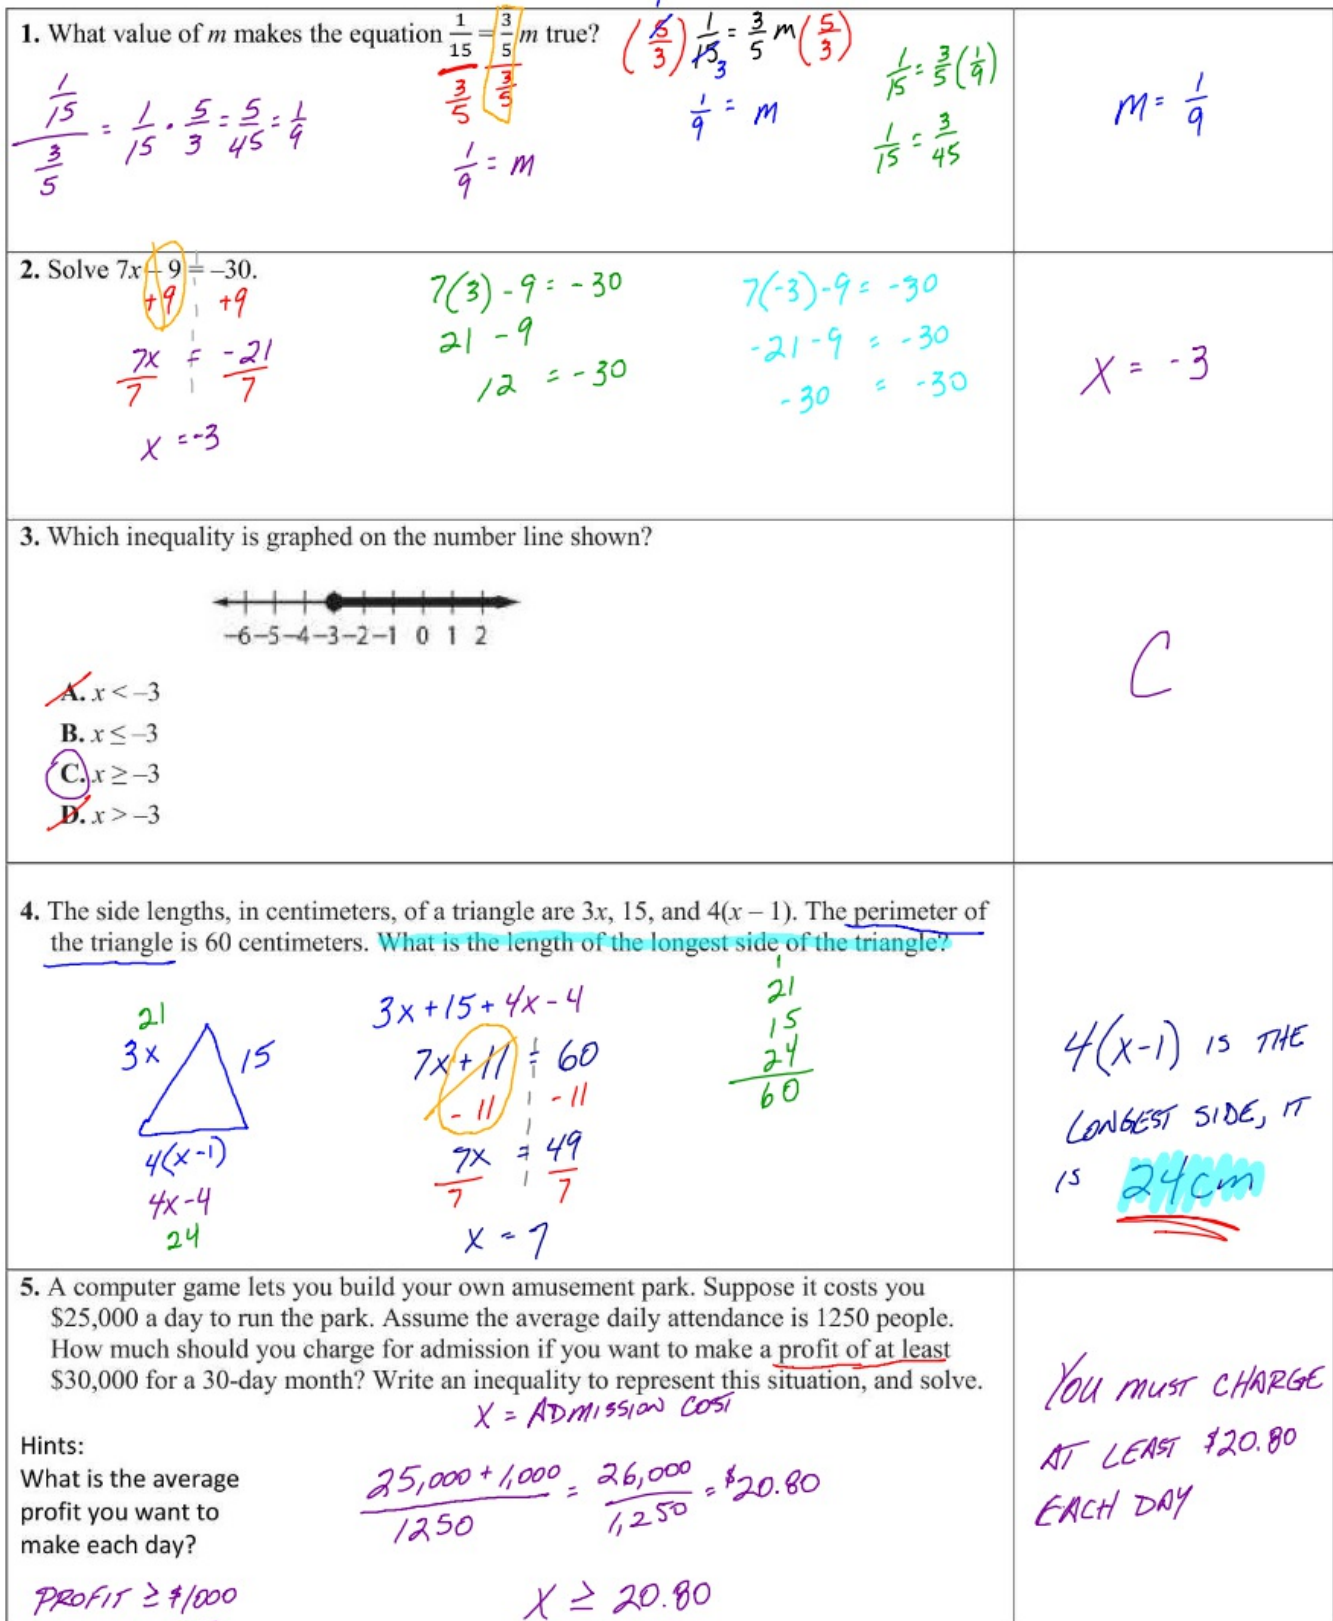 1. What value of m makes the equation 1/15 = 3/5 m true?
3/5 3/5
1/9 = m
(1/15)/(3/5) = 1/15 · 5/3 = 5/45 = 1/9
(5/3) 1/15 = 3/5 m (5/3)
1 3
1/9 = m
1/15 = 3/5 (1/9)
1/15 = 3/45
m = 1/9
2. Solve 7x – 9 = –30.
+9 +9
7x = -21
7 7
x = -3
7(3) - 9 = -30
21 - 9
12 = -30
7(-3) - 9 = -30
-21 - 9 = -30
-30 = -30
X = -3
3. Which inequality is graphed on the number line shown?
–6 –5 –4 –3 –2 –1 0 1 2
A. x < –3
B. x ≤ –3
C. x ≥ –3
D. x > –3
C
4. The side lengths, in centimeters, of a triangle are 3x, 15, and 4(x – 1). The perimeter of
the triangle is 60 centimeters. What is the length of the longest side of the triangle?
21
3x 15
4(x-1)
4x-4
24
3x + 15 + 4x - 4
7x + 11 = 60
- 11 - 11
7x = 49
7 7
x = 7
1
21
15
24
60
4(x-1) IS THE
LONGEST SIDE, IT
IS 24cm
5. A computer game lets you build your own amusement park. Suppose it costs you
$25,000 a day to run the park. Assume the average daily attendance is 1250 people.
How much should you charge for admission if you want to make a profit of at least
$30,000 for a 30-day month? Write an inequality to represent this situation, and solve.
X = ADMISSION COST
Hints:
What is the average
profit you want to
make each day?
PROFIT ≥ $1000
25,000 + 1,000 / 1250 = 26,000 / 1,250 = $20.80
X ≥ 20.80
YOU MUST CHARGE
AT LEAST $20.80
EACH DAY